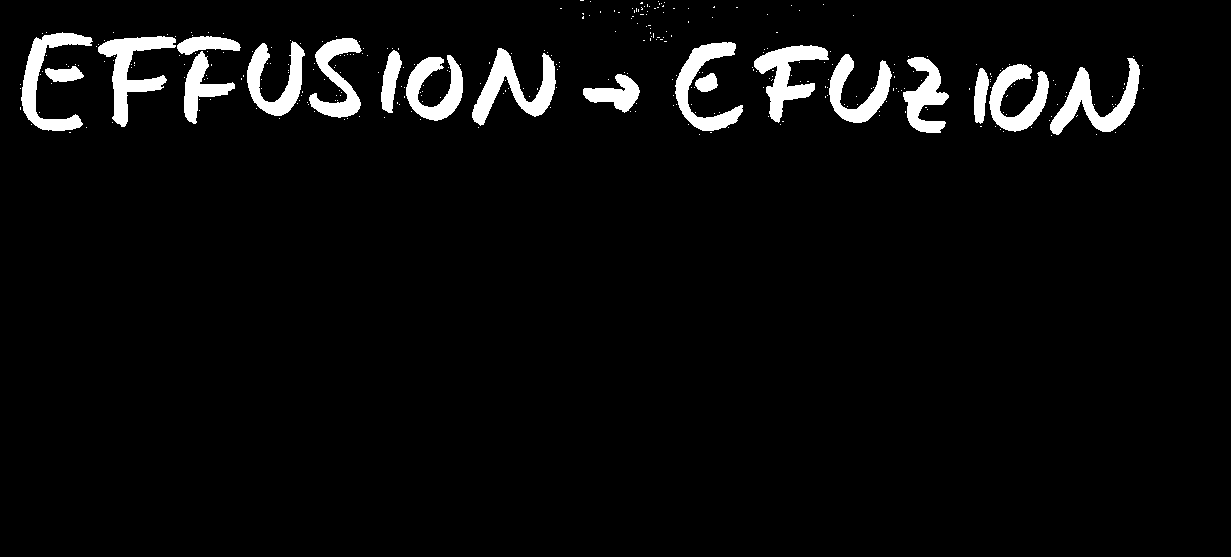 EFFUSION → EFUZION